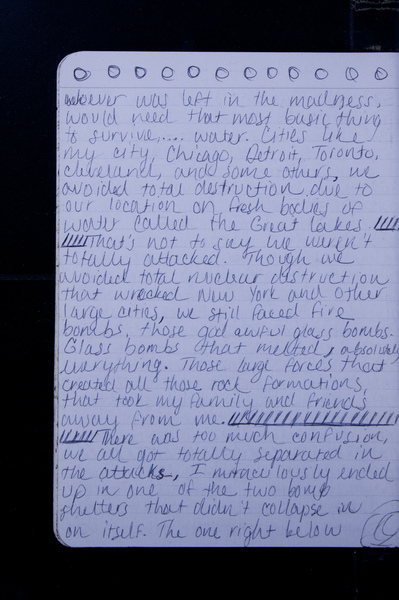 whoever was left in the madness,
would need that most basic thing
to survive,.... water. Cities like
my city, Chicago, Detroit, Toronto,
Cleveland, and some others, we
avoided total destruction due to
our location on fresh bodies of
water called the Great Lakes.
That's not to say we weren't
totally attacked. Though we
avoided total nuclear destruction
that wrecked New York and other
large cities, we still faced fire
bombs, those god awful glass bombs.
Glass bombs that melted, absolutely
everything. Those large forces that
created all those rock formations,
that took my family and friends
away from me.
There was too much confussion,
we all got totally separated in
the attacks, I miraculously ended
up in one of the two bomb
shelters that didn't collapse in
on itself. The one right below